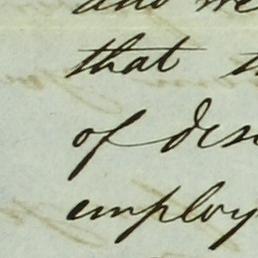 and we
that t
of des
employ